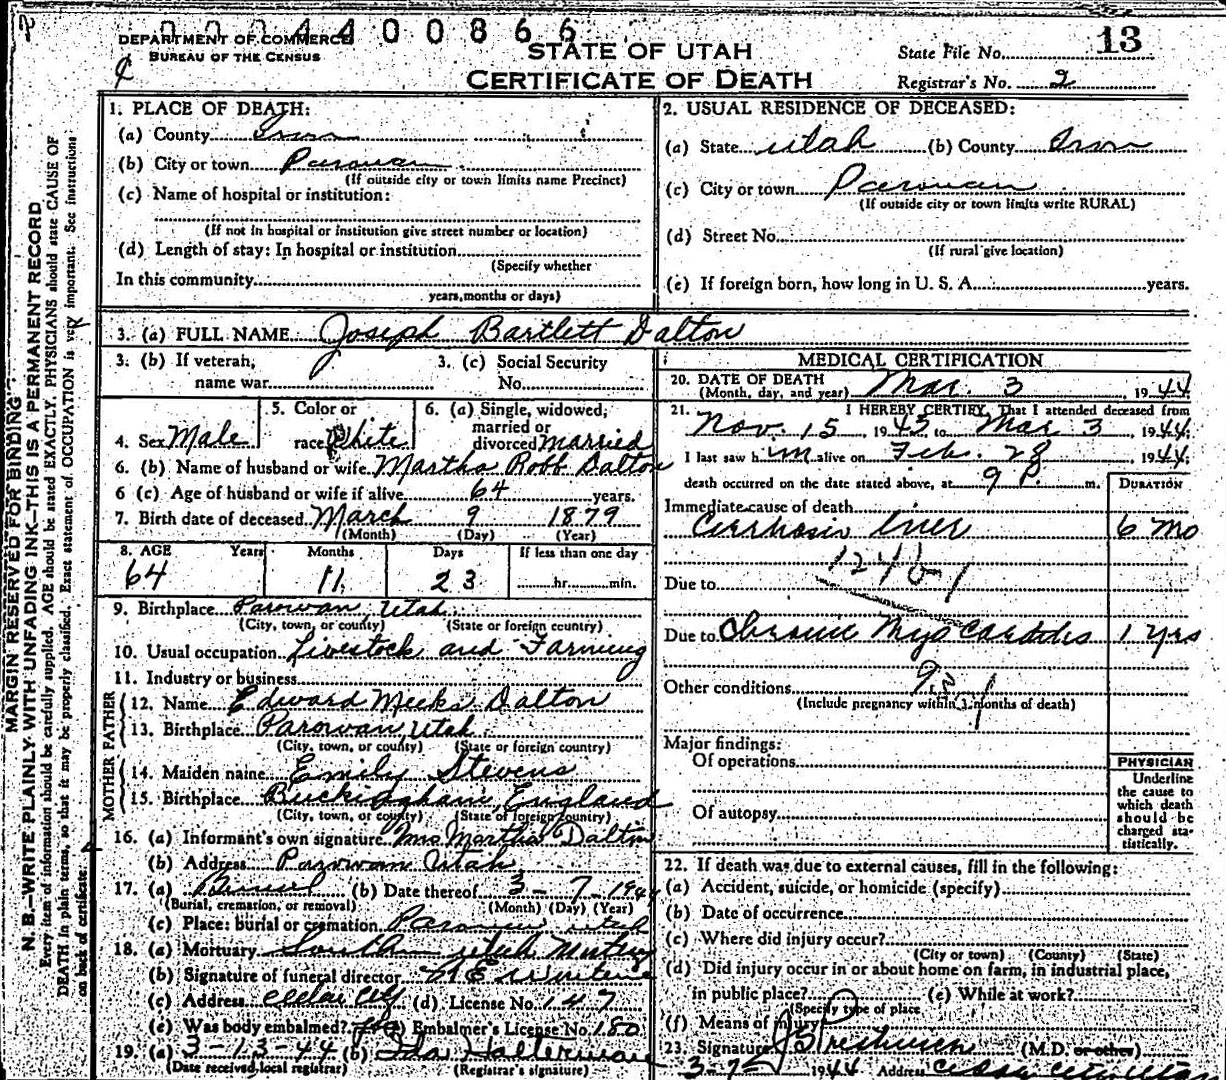 0 0 2 4 4 0 0 8 6 6
DEPARTMENT OF COMMERCE
BUREAU OF THE CENSUS
STATE OF UTAH
CERTIFICATE OF DEATH
State File No. 13
Registrar's No. 2
MARGIN RESERVED FOR BINDING
N. B.—WRITE PLAINLY WITH UNFADING INK—THIS IS A PERMANENT RECORD
Every item of information should be carefully supplied. AGE should be stated EXACTLY. PHYSICIANS should state CAUSE OF
DEATH in plain terms, so that it may be properly classified. Exact statement of OCCUPATION is very important. See instructions
on back of certificate.
1. PLACE OF DEATH:
(a) County Iron
(b) City or town Parowan
(If outside city or town limits name Precinct)
(c) Name of hospital or institution:
(If not in hospital or institution give street number or location)
(d) Length of stay: In hospital or institution
(Specify whether
In this community
years, months or days)
2. USUAL RESIDENCE OF DECEASED:
(a) State Utah (b) County Iron
(c) City or town Parowan
(If outside city or town limits write RURAL)
(d) Street No.
(If rural give location)
(e) If foreign born, how long in U. S. A. years.
3. (a) FULL NAME Joseph Bartlett Dalton
3. (b) If veteran, name war
3. (c) Social Security No.
4. Sex Male
5. Color or race White
6. (a) Single, widowed, married or divorced married
6. (b) Name of husband or wife Martha Robb Dalton
6 (c) Age of husband or wife if alive 64 years.
7. Birth date of deceased March 9 1879
(Month) (Day) (Year)
8. AGE Years Months Days If less than one day
64 11 23 hr. min.
9. Birthplace Parowan, Utah
(City, town, or county) (State or foreign country)
10. Usual occupation Livestock and Farming
11. Industry or business
FATHER
12. Name Edward Meeks Dalton
13. Birthplace Parowan, Utah
(City, town, or county) (State or foreign country)
MOTHER
14. Maiden name Emily Stevens
15. Birthplace Buckingham, England
(City, town, or county) (State or foreign country)
16. (a) Informant's own signature Mrs Martha Dalton
(b) Address Parowan Utah
17. (a) Burial (b) Date thereof 3-7-1944
(Burial, cremation, or removal) (Month) (Day) (Year)
(c) Place: burial or cremation Parowan Utah
18. (a) Mortuary Southern Utah Mortuary
(b) Signature of funeral director
(c) Address Cedar City (d) License No. 147
(e) Was body embalmed? yes (f) Embalmer's License No. 180
19. (a) 3-13-44 (b) Ida Halterman
(Date received local registrar) (Registrar's signature)
MEDICAL CERTIFICATION
20. DATE OF DEATH Mar. 3, 1944
(Month, day, and year)
21. I HEREBY CERTIFY, That I attended deceased from
Nov. 15, 1943 to Mar 3, 1944
I last saw him alive on Feb. 28, 1944
death occurred on the date stated above, at 9 P. m.
DURATION
Immediate cause of death
Cirrhosis liver 6 mo
124b-1
Due to
Due to Chronic Myocarditis 1 yrs
Other conditions
(Include pregnancy within 3 months of death)
Major findings:
Of operations
Of autopsy
PHYSICIAN
Underline
the cause to
which death
should be
charged sta-
tistically.
22. If death was due to external causes, fill in the following:
(a) Accident, suicide, or homicide (specify)
(b) Date of occurrence
(c) Where did injury occur?
(City or town) (County) (State)
(d) Did injury occur in or about home on farm, in industrial place,
in public place? (e) While at work?
(Specify type of place
(f) Means of injury
23. Signature (M.D. or other)
3-7- 1944 Address Cedar City Utah